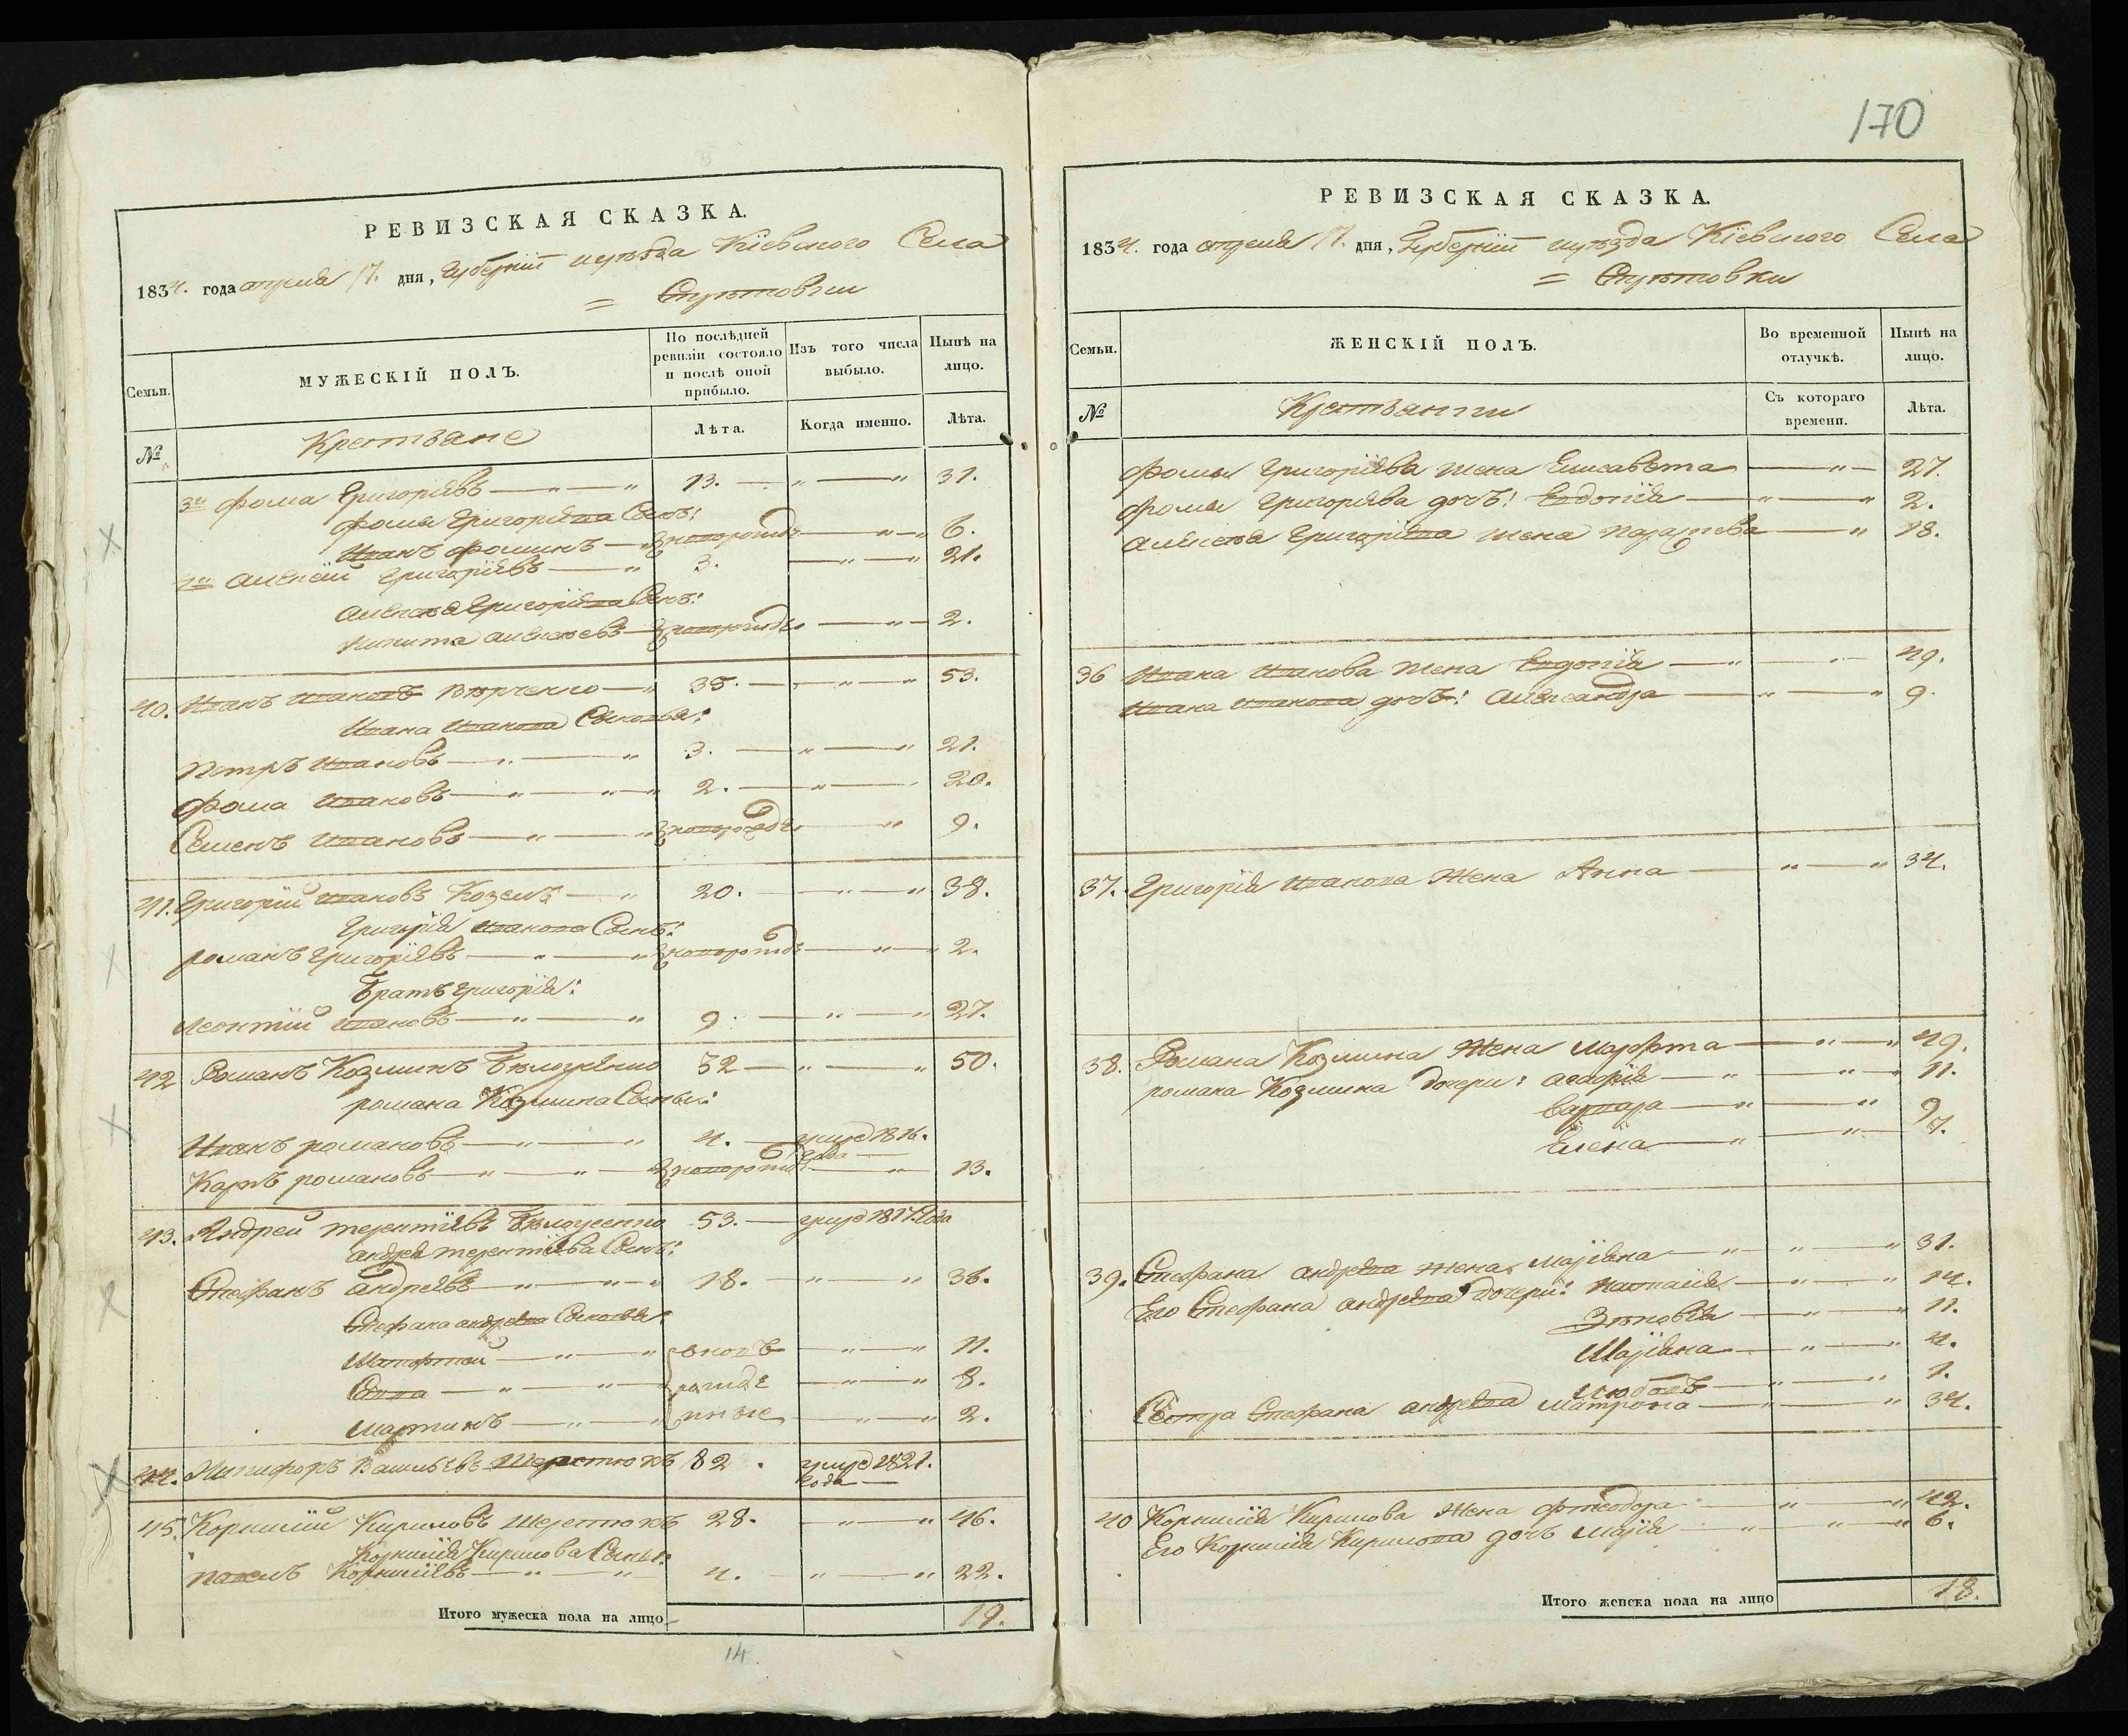 170
РЕВИЗСКАЯ СКАЗКА.
1834. года апреля 17. дня, Губернiи и уѣзда Кiевского Села
= Спѣтовки
Семьи.
МУЖЕСКIЙ ПОЛЪ.
По послѣдней ревизiи состояло и послѣ оной прибыло.
Изъ того числа выбыло.
Нынѣ на лицо.
№
Крестьяне
Лѣта.
Когда именно.
Лѣта.
3й Фома Григорiевъ — " — " 13. — " — " 31.
Фомы Григорiева Сынъ:
Иванъ Фоминъ — " новорожд: — " — " 6.
Алексiй Григорiевъ — " 3. — " — " 21.
Алексѣя Григорiева Сынъ:
Никита Алексѣевъ — новорожд: — " — 2.
40. Иванъ Ивановъ Вюрченко — " 35. — " — " 53.
Ивана Иванова Сыновья:
Петръ Ивановъ — " — " 3. — " — " 21.
Фома Ивановъ — " — " — " 2. — " — 20.
Семенъ Ивановъ — " — " новорожд: — " 9.
41. Григорiй Ивановъ Козелъ — " 20. — " — " 38.
Григорiя Иванова Сынъ:
Романъ Григорiевъ — " — " новорожд: — " — " 2.
Братъ Григорiя:
Леонтiй Ивановъ — " — " 9. — " — " 27.
42 Романъ Козминъ 32 — " — " 50.
Романа Козмина Сыны:
Иванъ Романовъ — " — " 4. — умре 1816. года —
Карпъ Романовъ — " — " — новорожд: — " 13.
43. Андрей Терентiевъ 53. — умре 1817. года
Андрея Терентiева Сынъ:
Стефанъ Андреевъ — " — " — " 18. — " — " 36.
Стефана Андреева Сыновья:
— " — " вновь — " — " 11.
Савва — " — " рожде — " — " 8.
Мартинъ — " — " нные — " — " 2.
44. Никифоръ Васильевъ Шерстюкъ 82. умре 1821. года —
45. Корнилiй Кириловъ Шерстюкъ 28. — " — " 46.
Корнилiя Кирилова Сынъ:
Павелъ Корнилiевъ — " — " 4. — " — " 22.
Итого мужеска пола на лицо — 19.
14.
РЕВИЗСКАЯ СКАЗКА.
1834. года апреля 17. дня, Губернiи и уѣзда Кiевского Села
= Спѣтовки
Семьи.
ЖЕНСКIЙ ПОЛЪ.
Во временной отлучкѣ.
Нынѣ на лицо.
№
Крестьянки
Съ котораго времени.
Лѣта.
Фомы Григорiева жена Елисавета — " — 27.
Фомы Григорiева дочь: Евдокiя — " — " 2.
Алексѣя Григорiева жена Параскева — " 18.
36 Ивана Иванова жена Евдокiя — " — " — 49.
Ивана Иванова дочь: Александра — " — " 9.
37. Григорiя Иванова жена Анна — " — " 34.
38. Романа Козмина жена Марфа — " — " 49.
Романа Козмина дочери: Агафiя — " — " — " 11.
Варвара — " — " 9
Елена — " — " 7.
39. Стефана Андреева жена Марiяна — " — " — " 31.
Его Стефана Андреева дочери: Наталiя — " — " 14.
Зѣновiя — " — " 11.
Марiяна — " — " 4.
Любовъ — " — " 1.
Сестра Стефана Андреева Матрона — " — " 34.
40 Корнилiя Кирилова жена Феодора — " — " 42.
Его Корнилiя Кирилова дочь Марiя — " — " — " 6.
Итого женска пола на лицо 18.